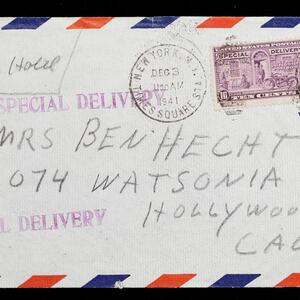 Hotel
SPECIAL DELIVERY
NEW YORK, N.Y.
DEC 3
AM
1941
TIMES SQUARE STA.
UNITED STATES POSTAGE
SPECIAL DELIVERY
10
TEN CENTS
MRS BEN HECHT
074 WATSONIA
HOLLYWOO
CAL
L DELIVERY